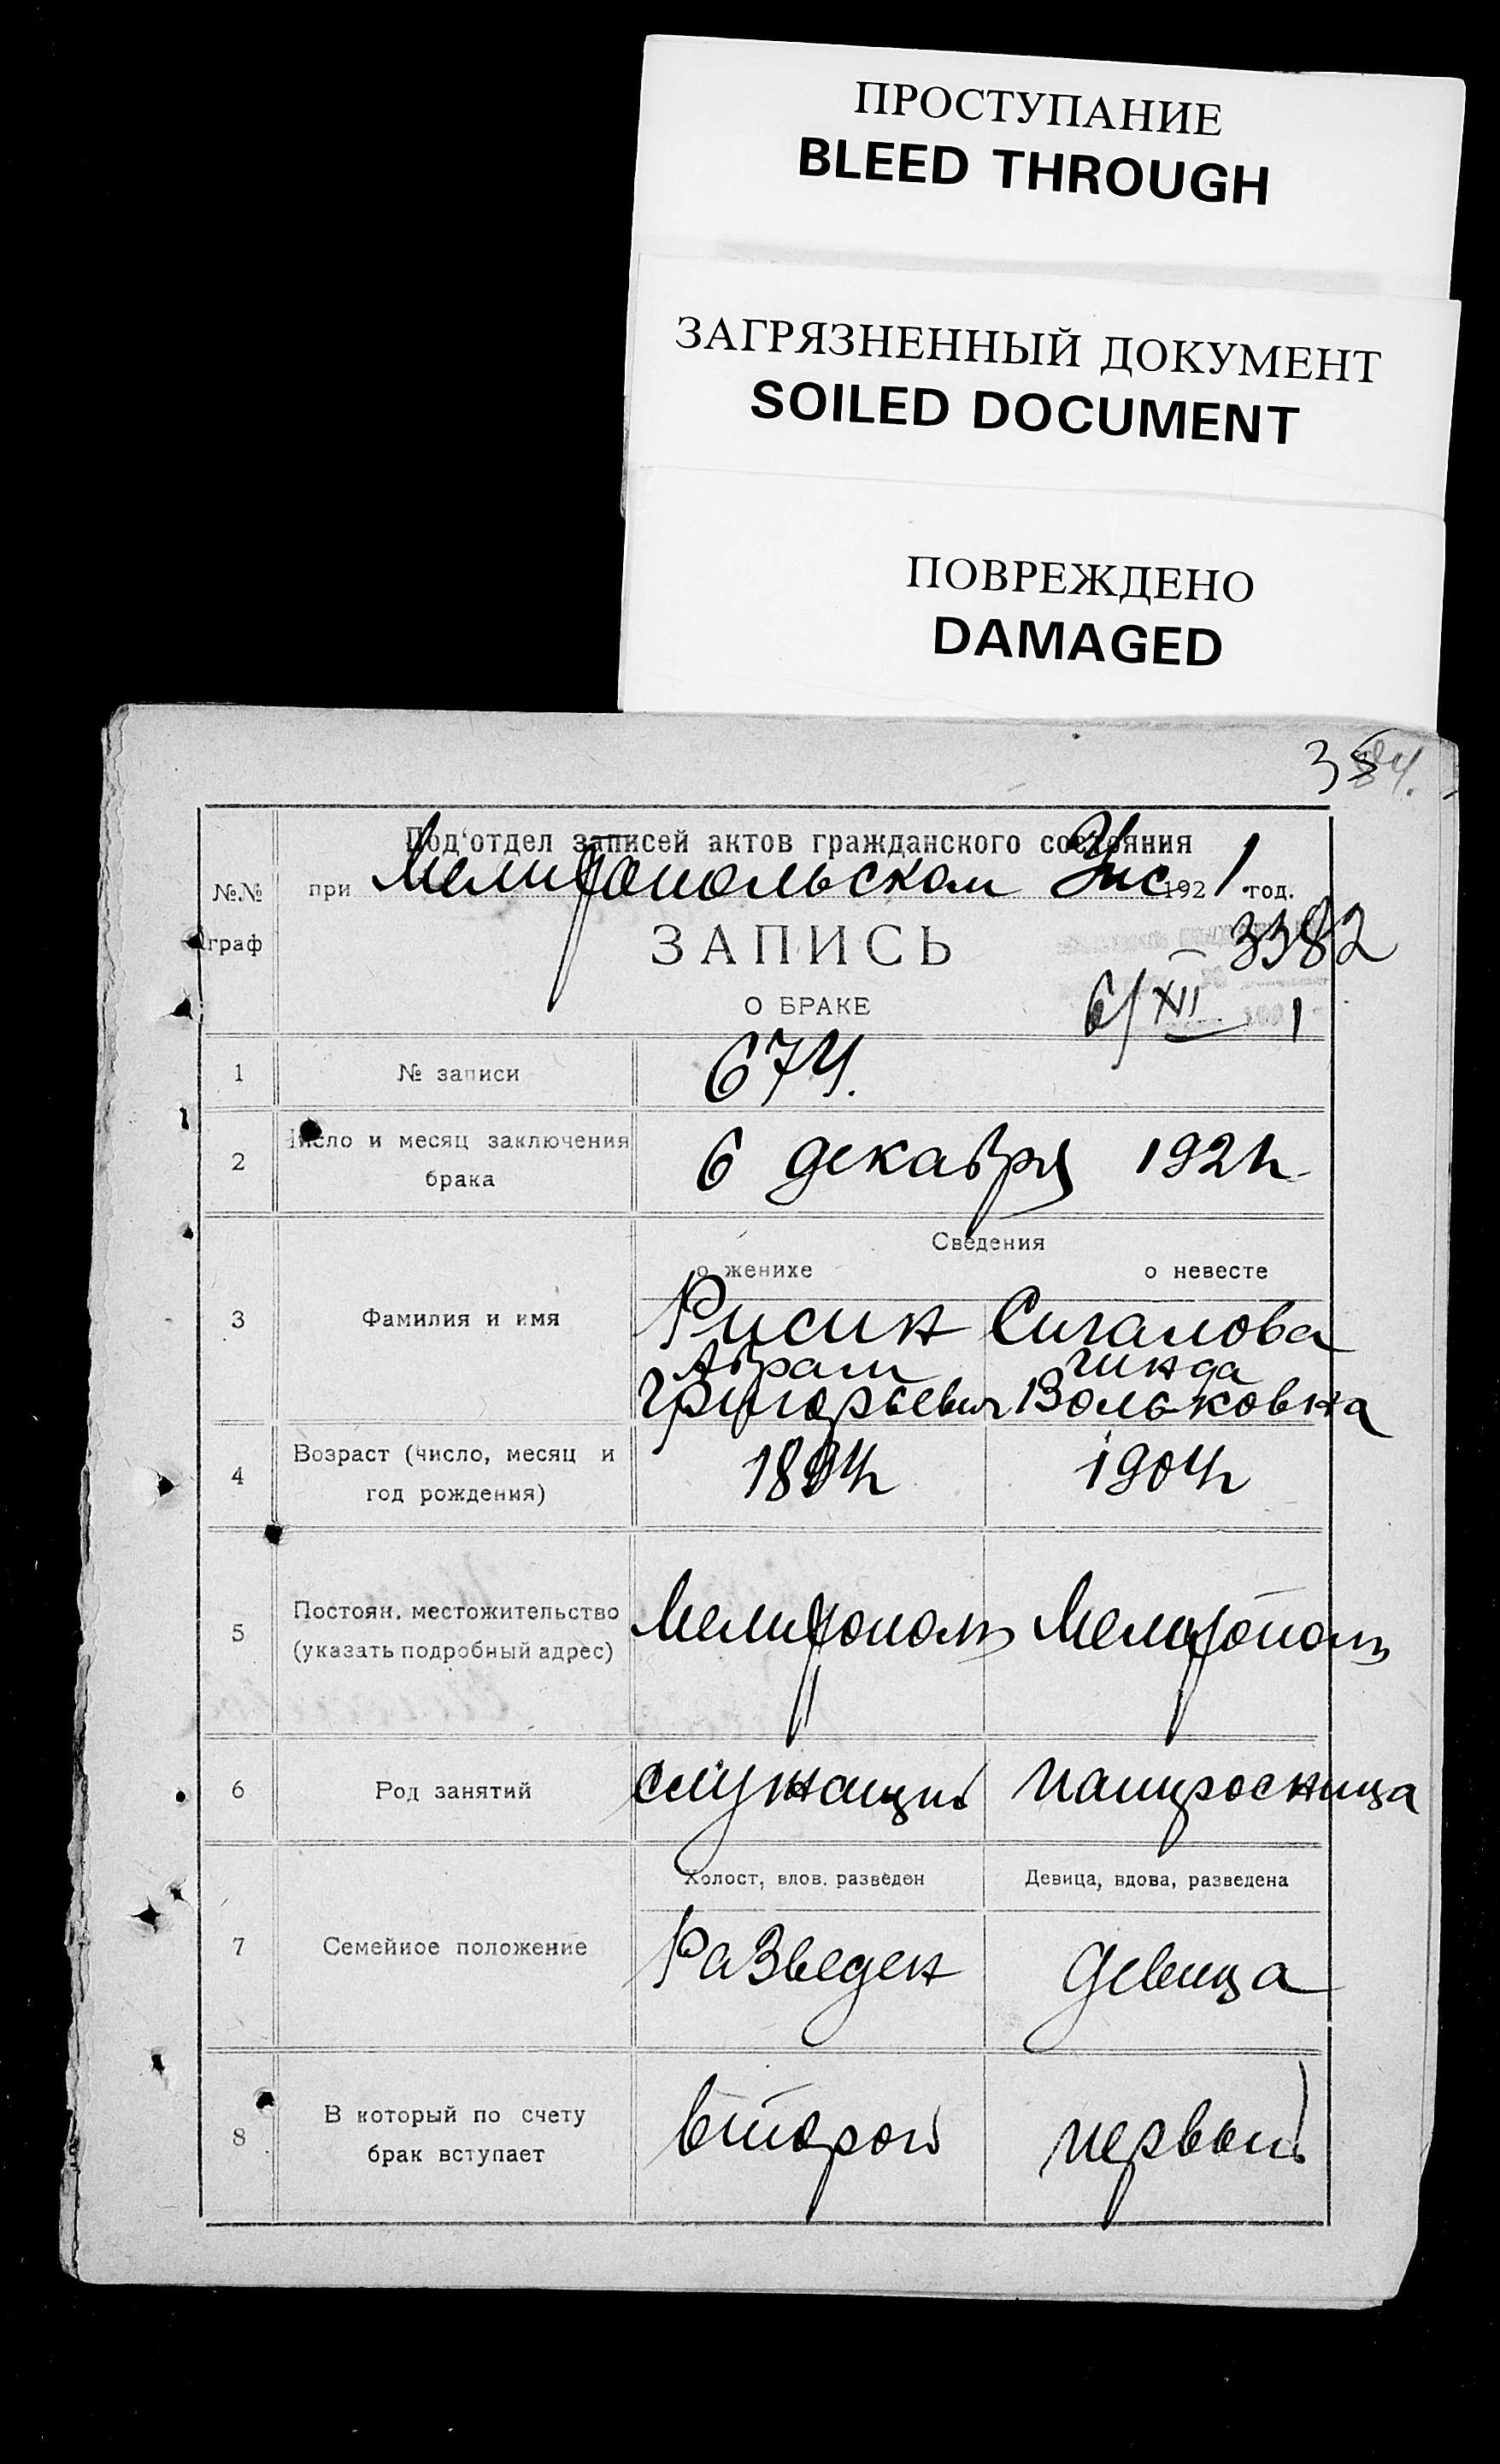 ПРОСТУПАНИЕ
BLEED THROUGH
ЗАГРЯЗНЕННЫЙ ДОКУМЕНТ
SOILED DOCUMENT
ПОВРЕЖДЕНО
DAMAGED
Под‘отдел записей актов гражданского состояния
№№ при Мелитопольском 1921 год.
граф
ЗАПИСЬ 3382
О БРАКЕ 6/XII 1
1 № записи 674.
2 Число и месяц заключения брака 6 декабря 1921г.
Сведения
о женихе о невесте
3 Фамилия и имя Рисин Сигалова
Абрам Гинда
Григорьевич Вольковна
4 Возраст (число, месяц и год рождения) 1894г 1904г
5 Постоян. местожительство Мелитополь Мелитополь
(указать подробный адрес)
6 Род занятий служащий папиросница
Холост, вдов. разведен Девица, вдова, разведена
7 Семейное положение Разведен девица
8 В который по счету второй первый
брак вступает